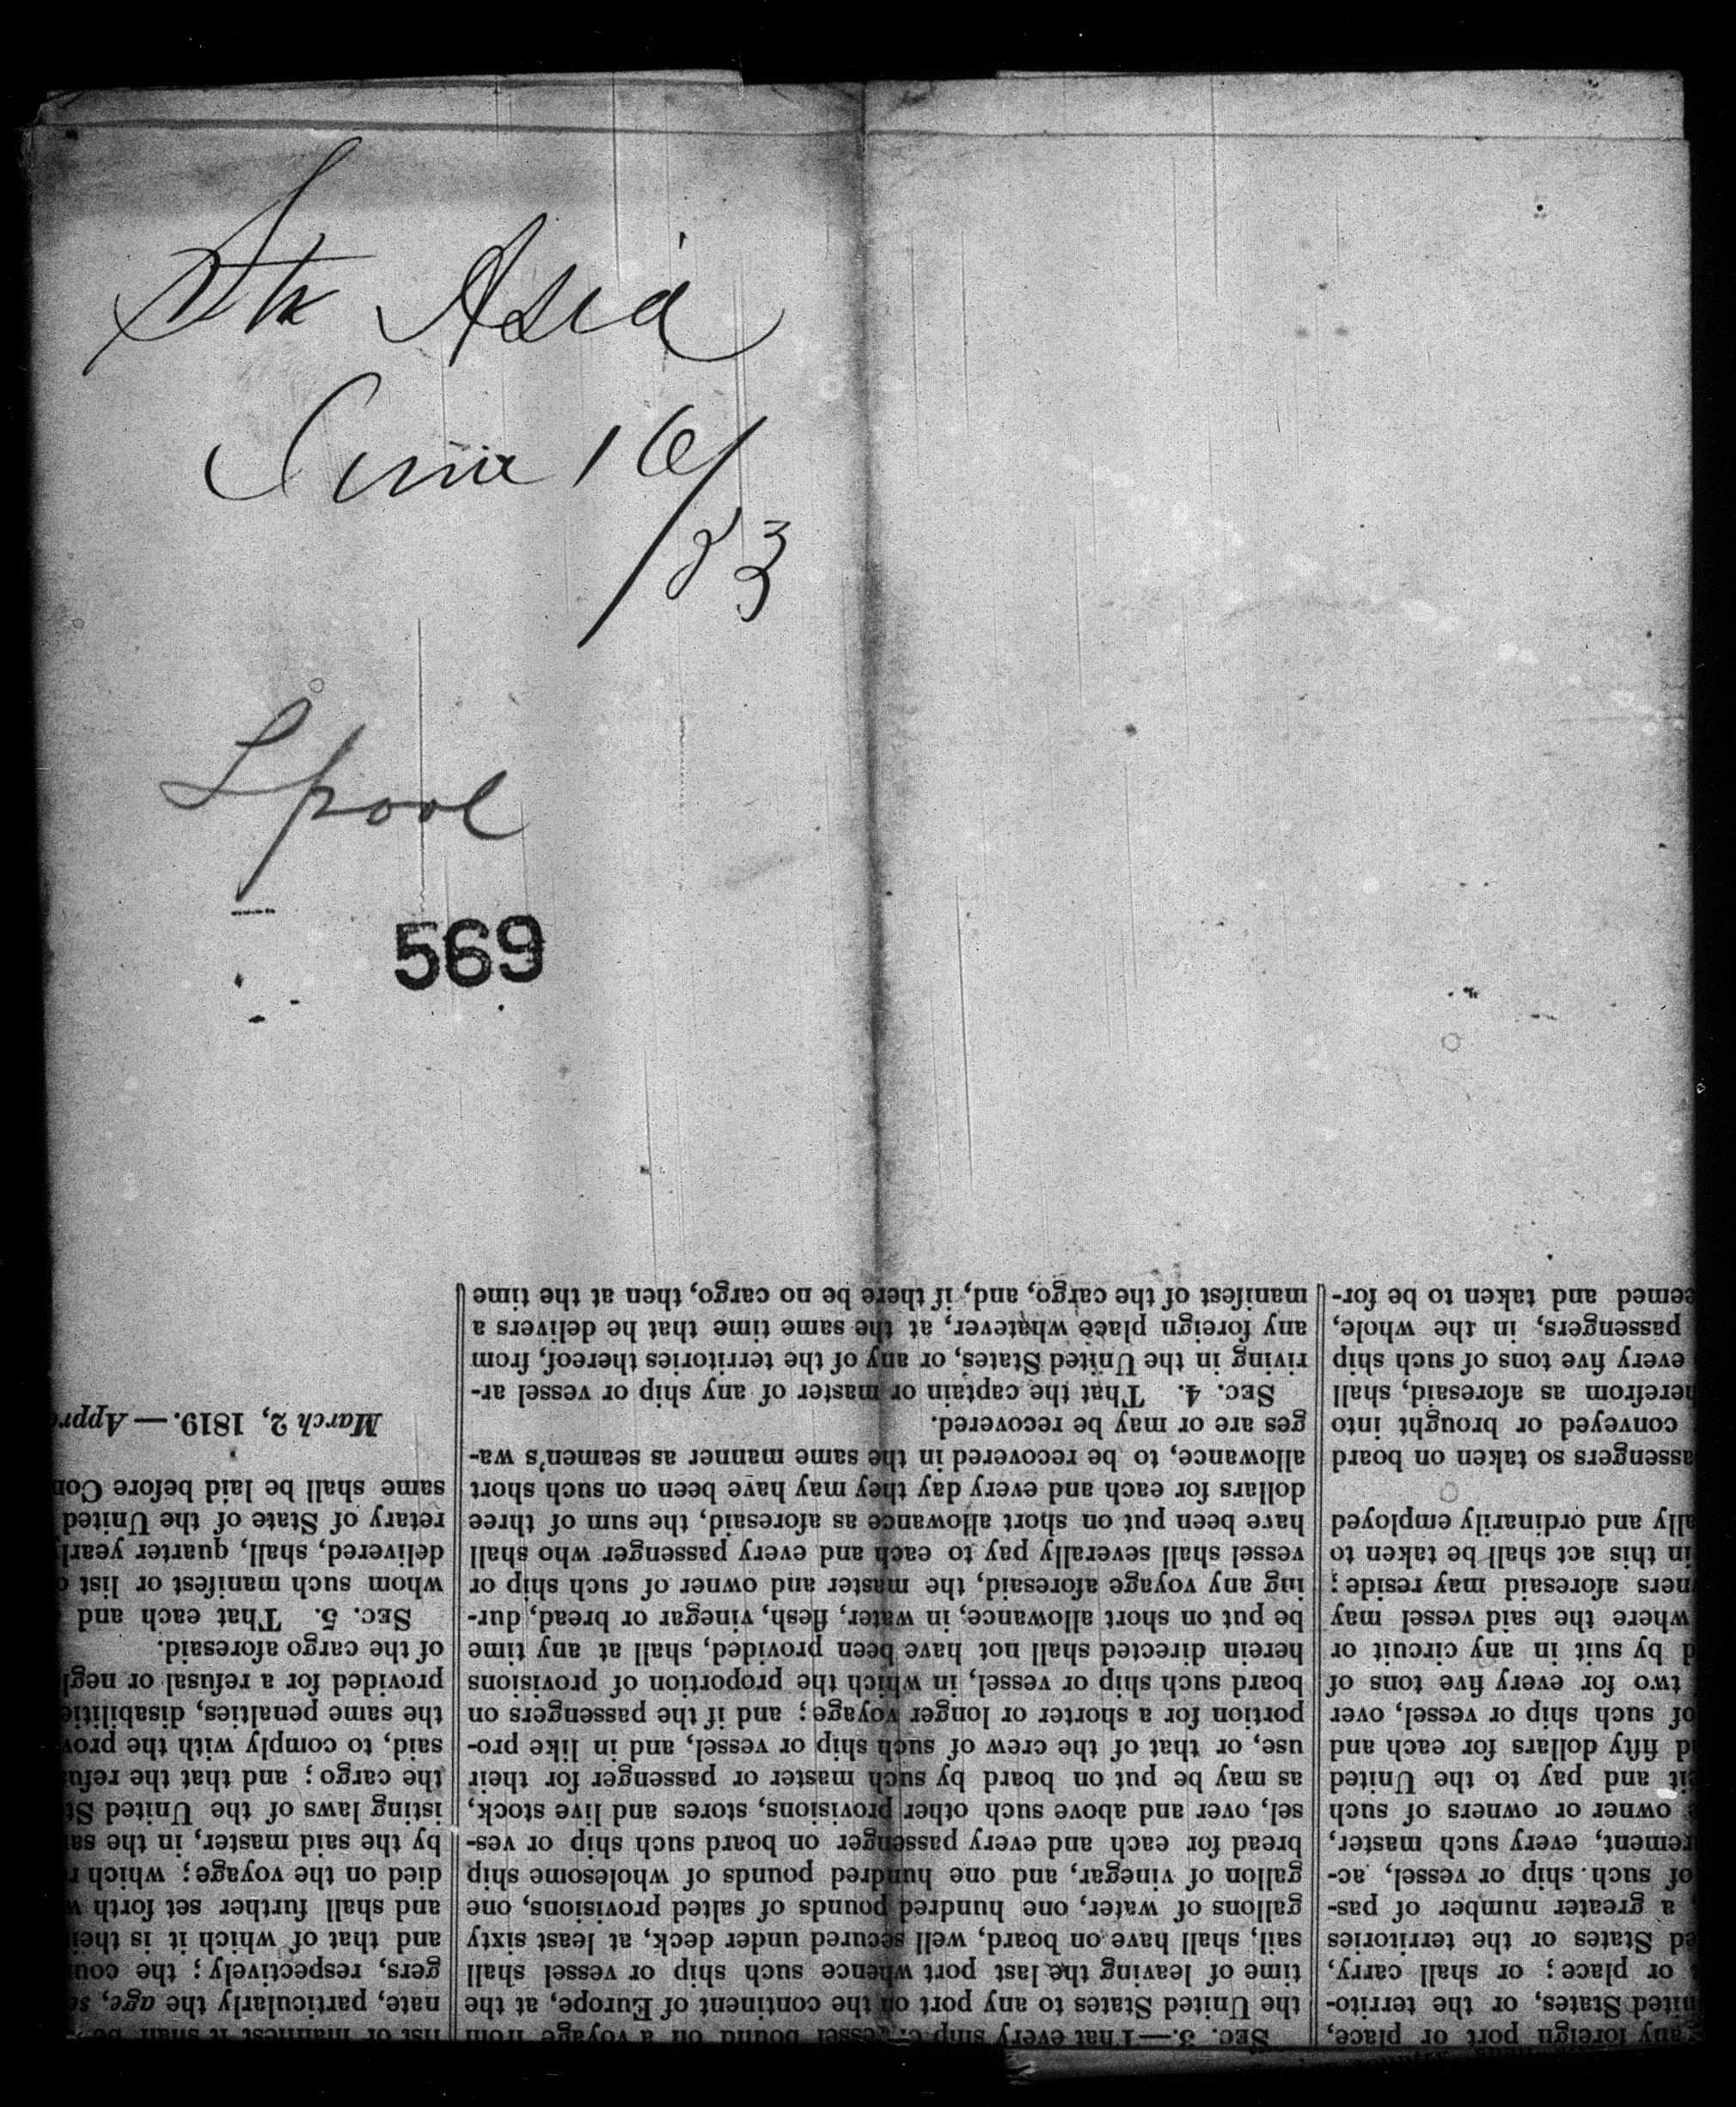 Str Asia
June 16/53
Lpool
569
any foreign port or place,
nited States, or the territo-
or place; or shall carry,
ed States or the territories
a greater number of pas-
of such ship or vessel, ac-
rement, every such master,
owner or owners of such
it and pay to the United
d fifty dollars for each and
of such ship or vessel, over
two for every five tons of
d by suit in any circuit or
where the said vessel may
ners aforesaid may reside:
in this act shall be taken to
ally and ordinarily employed
assengers so taken on board
conveyed or brought into
herefrom as aforesaid, shall
every five tons of such ship
passengers, in the whole,
eemed and taken to be for-
SEC. 3.—That every ship or vessel bound on a voyage from
the United States to any port on the continent of Europe, at the
time of leaving the last port whence such ship or vessel shall
sail, shall have on board, well secured under deck, at least sixty
gallons of water, one hundred pounds of salted provisions, one
gallon of vinegar, and one hundred pounds of wholesome ship
bread for each and every passenger on board such ship or ves-
sel, over and above such other provisions, stores and live stock,
as may be put on board by such master or passenger for their
use, or that of the crew of such ship or vessel, and in like pro-
portion for a shorter or longer voyage; and if the passengers on
board such ship or vessel, in which the proportion of provisions
herein directed shall not have been provided, shall at any time
be put on short allowance, in water, flesh, vinegar or bread, dur-
ing any voyage aforesaid, the master and owner of such ship or
vessel shall severally pay to each and every passenger who shall
have been put on short allowance as aforesaid, the sum of three
dollars for each and every day they may have been on such short
allowance, to be recovered in the same manner as seamen's wa-
ges are or may be recovered.
SEC. 4. That the captain or master of any ship or vessel ar-
riving in the United States, or any of the territories thereof, from
any foreign place whatever, at the same time that he delivers a
manifest of the cargo, and, if there be no cargo, then at the time
list or manifest it shall be
nate, particularly the age, se
gers, respectively; the cou
and that of which it is thei
and shall further set forth w
died on the voyage; which r
by the said master, in the sa
isting laws of the United St
the cargo; and that the refu
said, to comply with the prov
the same penalties, disabilitie
provided for a refusal or negl
of the cargo aforesaid.
SEC. 5. That each and
whom such manifest or list
delivered, shall, quarter yearl
retary of State of the United
same shall be laid before Con
March 2, 1819.—Appro